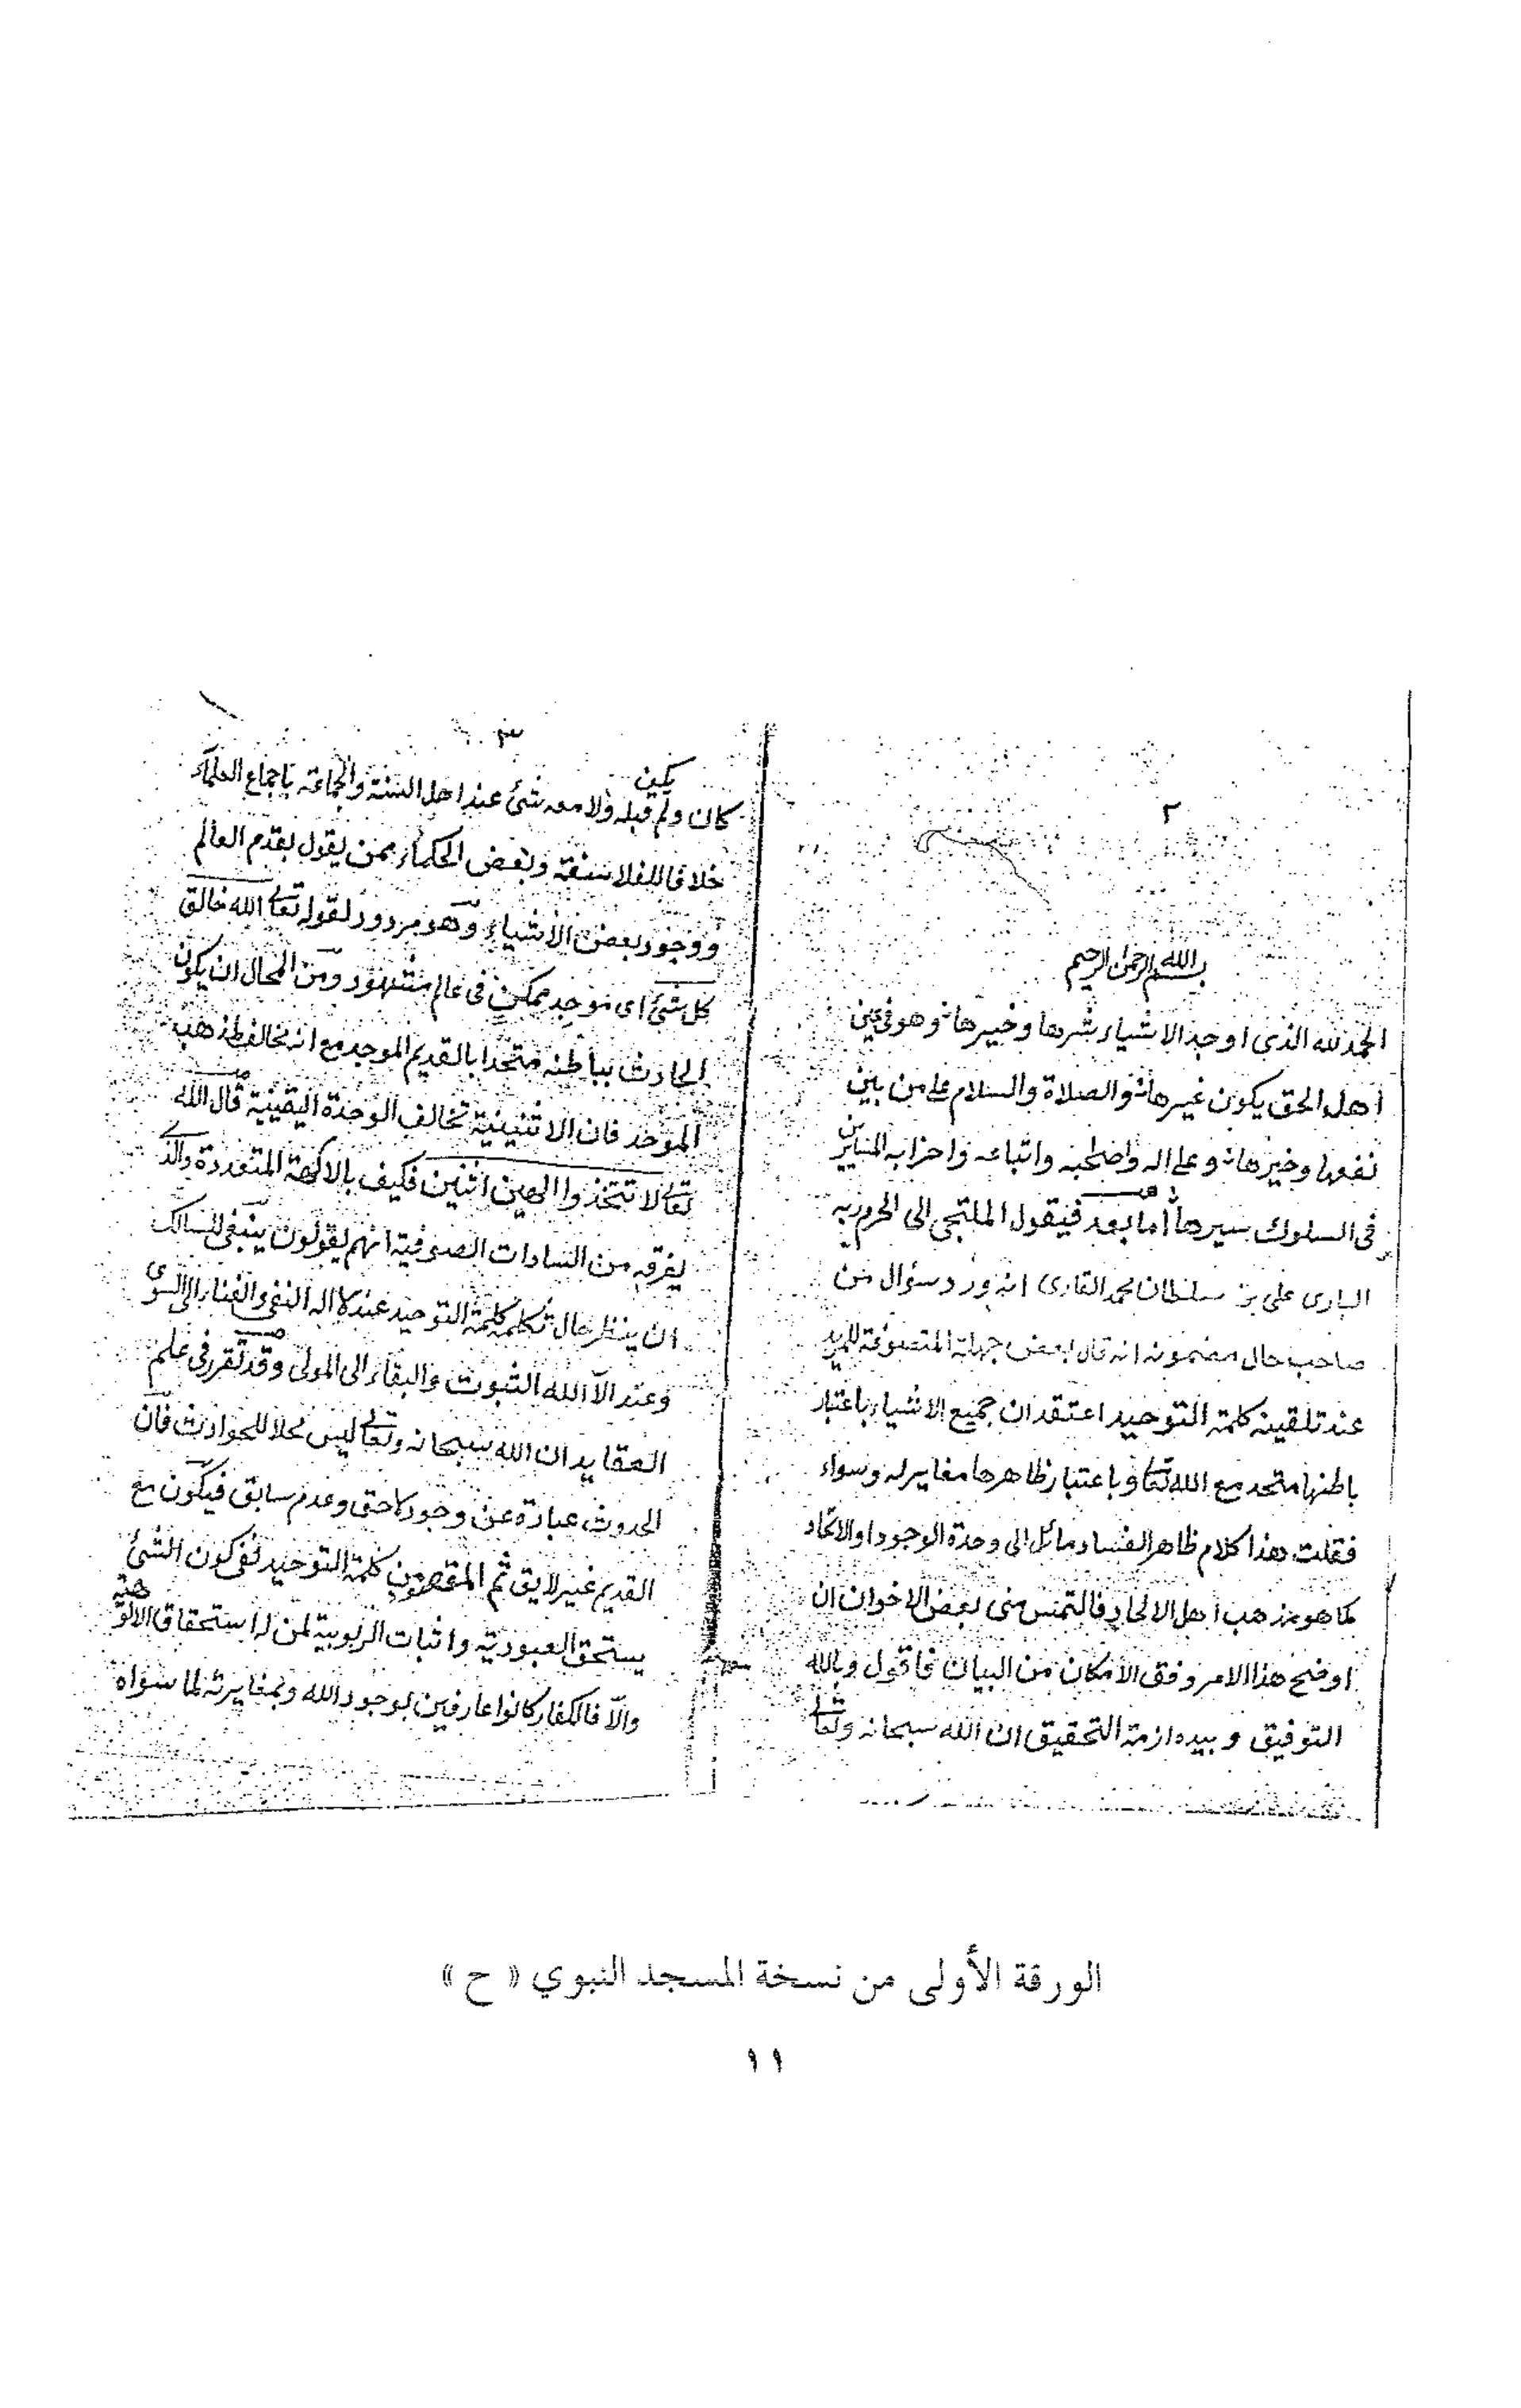 ٢
بسم الله الرحمن الرحيم
الحمد لله الذى اوجد الاشياء شرها وخيرها وهو فى عين
اهل الحق يكون غيرها والصلاة والسلام على من بين
نفعها وخيرها وعلى اله واصحبه واتباعه واحزابه السايرين
فى السلوك سيرها أما بعد فيقول الملتجى الى الحرم ربه
البارى على بن سلطان محمد القارى انه ورد سؤال من
صاحب حال مضمونه انه قال بعض جهلة المتصوفة للمريد
عند تلقينه كلمة التوحيد اعتقد ان جميع الاشياء باعتبار
باطنها متحد مع الله تعالى وباعتبار ظاهرها مغاير له وسواء
فقلت هذا كلام ظاهر الفساد مائل الى وحدة الوجود او الاتحاد
كما هو مذهب اهل الالحاد فالتمس منى بعض الاخوان ان
اوضح هذا الامر وفق الامكان من البيان فاقول وبالله
التوفيق وبيده ازمة التحقيق ان الله سبحانه وتعالى
٣
يكن
كان ولم قبله ولا معه شئ عند اهل السنة والجماعة باجماع العلماء
خلافا للفلاسفة وبعض الحكماء ممن يقول بقدم العالم
ووجود بعض الاشياء وهو مردود لقوله تعالى الله خالق
كل شئ اى موجد ممكن فى عالم مشهود ومن المحال ان يكون
الحادث بباطنه متحدا بالقديم الموجد مع انه مخالف لمذهب
الموحد فان الاثنينية تخالف الوحدة اليقينية قال الله
تعالى لا تتخذوا الهين اثنين فكيف بالالهة المتعددة والذى
يعرفه من السادات الصوفية انهم يقولون ينبغى للسالك
ان ينظر حال تكلمه كلمة التوحيد عند لا اله النفى والفناء الى السوى
وعند الا الله الثبوت والبقاء الى المولى وقد تقرر فى علم
العقايد ان الله سبحانه وتعالى ليس محلا للحوادث فان
الحدوث عبارة عن وجود لاحق وعدم سابق فيكون مع
القديم غير لايق ثم المقصود من كلمة التوحيد نفى كون الشئ
يستحق العبودية واثبات الربوبية لمن له استحقاق الالوهية
والا فالكفار كانوا عارفين بوجود الله وبمغايرته لما سواه
الورقة الأولى من نسخة المسجد النبوي « ح »
١١